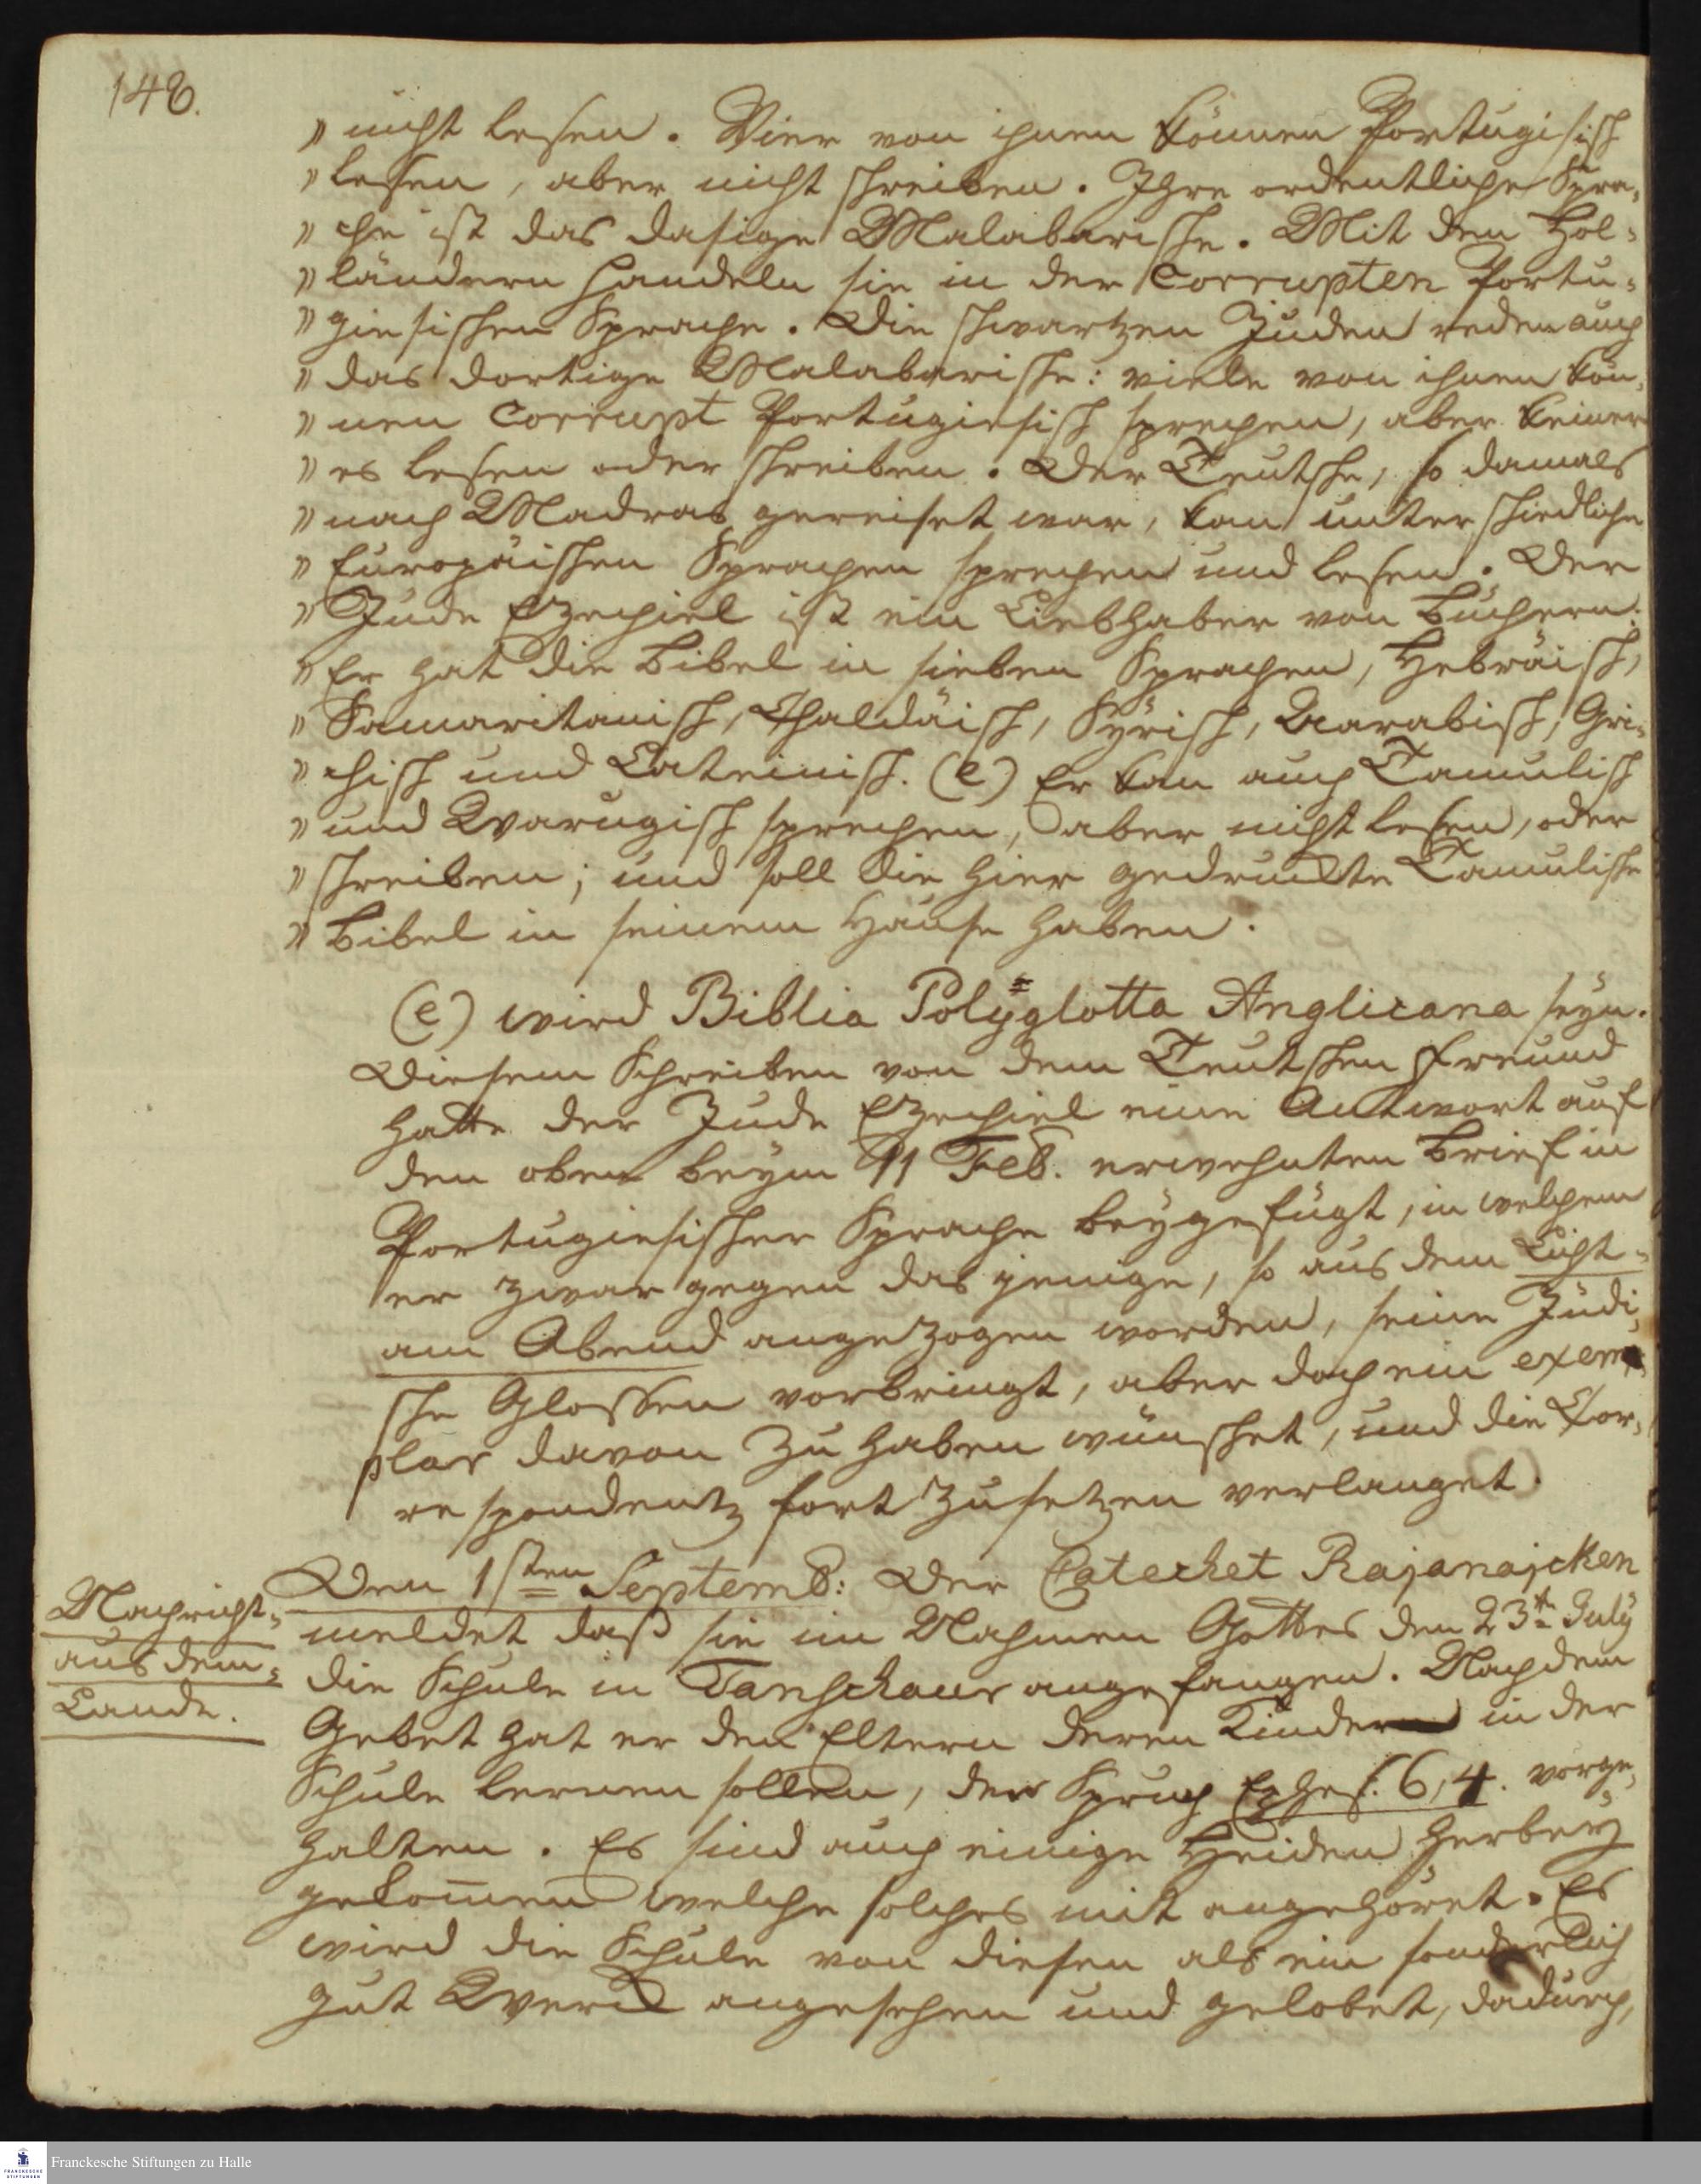 148.
" nicht lesen. Vier von ihnen können Portugisisch
" lesen, aber nicht schreiben. Ihre ordentliche Spra-
" che ist das dasige Malabarische. Mit den Hol-
" ländern handeln sie in der Corrupten Portu-
" giesischen Sprache. Die schwartzen Juden reden auch
" das dortige Malabarische: viele von ihnen kön-
" nen Corrupt Portugiesisch sprechen, aber keiner
" es lesen oder schreiben. Der Teutsche, so damals
" nach Madras gereiset war, kan unterschiedliche
" Europäischen Sprachen sprechen und lesen. Der
" Jude Ezechiel ist ein Liebhaber von Büchern:
" Er hat die Bibel in sieben Sprachen, Hebräisch,
" Samaritanisch, Chaldäisch, Syrisch, Aarabisch, Gri-
" chisch und Lateinisch. (e) Er kan auch Tamulisch
" und Warugisch sprechen, aber nicht lesen, oder
" schreiben; und soll die hier gedruckte Tamulische
" Bibel in seinem Hause haben.
(e) wird Biblia Polÿ=glotta Anglicana seyn.
Diesem Schreiben von dem Teutschen Freund
hatte der Jude Ezechiel eine Antwort auf
den oben beym 11 Feb. erwehnten Brief in
Portugiesischer Sprache beygefügt, in welchem
er zwar gegen das jenige, so aus dem Licht-
am Abend angezogen worden, seine Jüdi-
sche Glossen vorbringt, aber doch ein exem-
plar davon zu haben wünschet, und die Cor-
respondentz fort zu setzen verlanget.
Nachricht-
aus dem-
Lande.
Den 1sten Septemb: Der Catechet Rajanaicken
meldet daß sie im Nahmen Gottes den 23t July
die Schule in Tanschaur angefangen. Nach dem
Gebet hat er den Eltern deren Kinder in der
Schule lernen sollen, den Spruch Eph. 6,4. vorge-
halten. Es sind auch einige Heiden herbey
gekommen welche solches mit angehöret. Es
wird die Schule von diesen als ein sonderlich
gut Werck angesehen und gelobet, dadurch,
Franckesche Stiftungen zu Halle
FRANCKESCHE
STIFTUNGEN